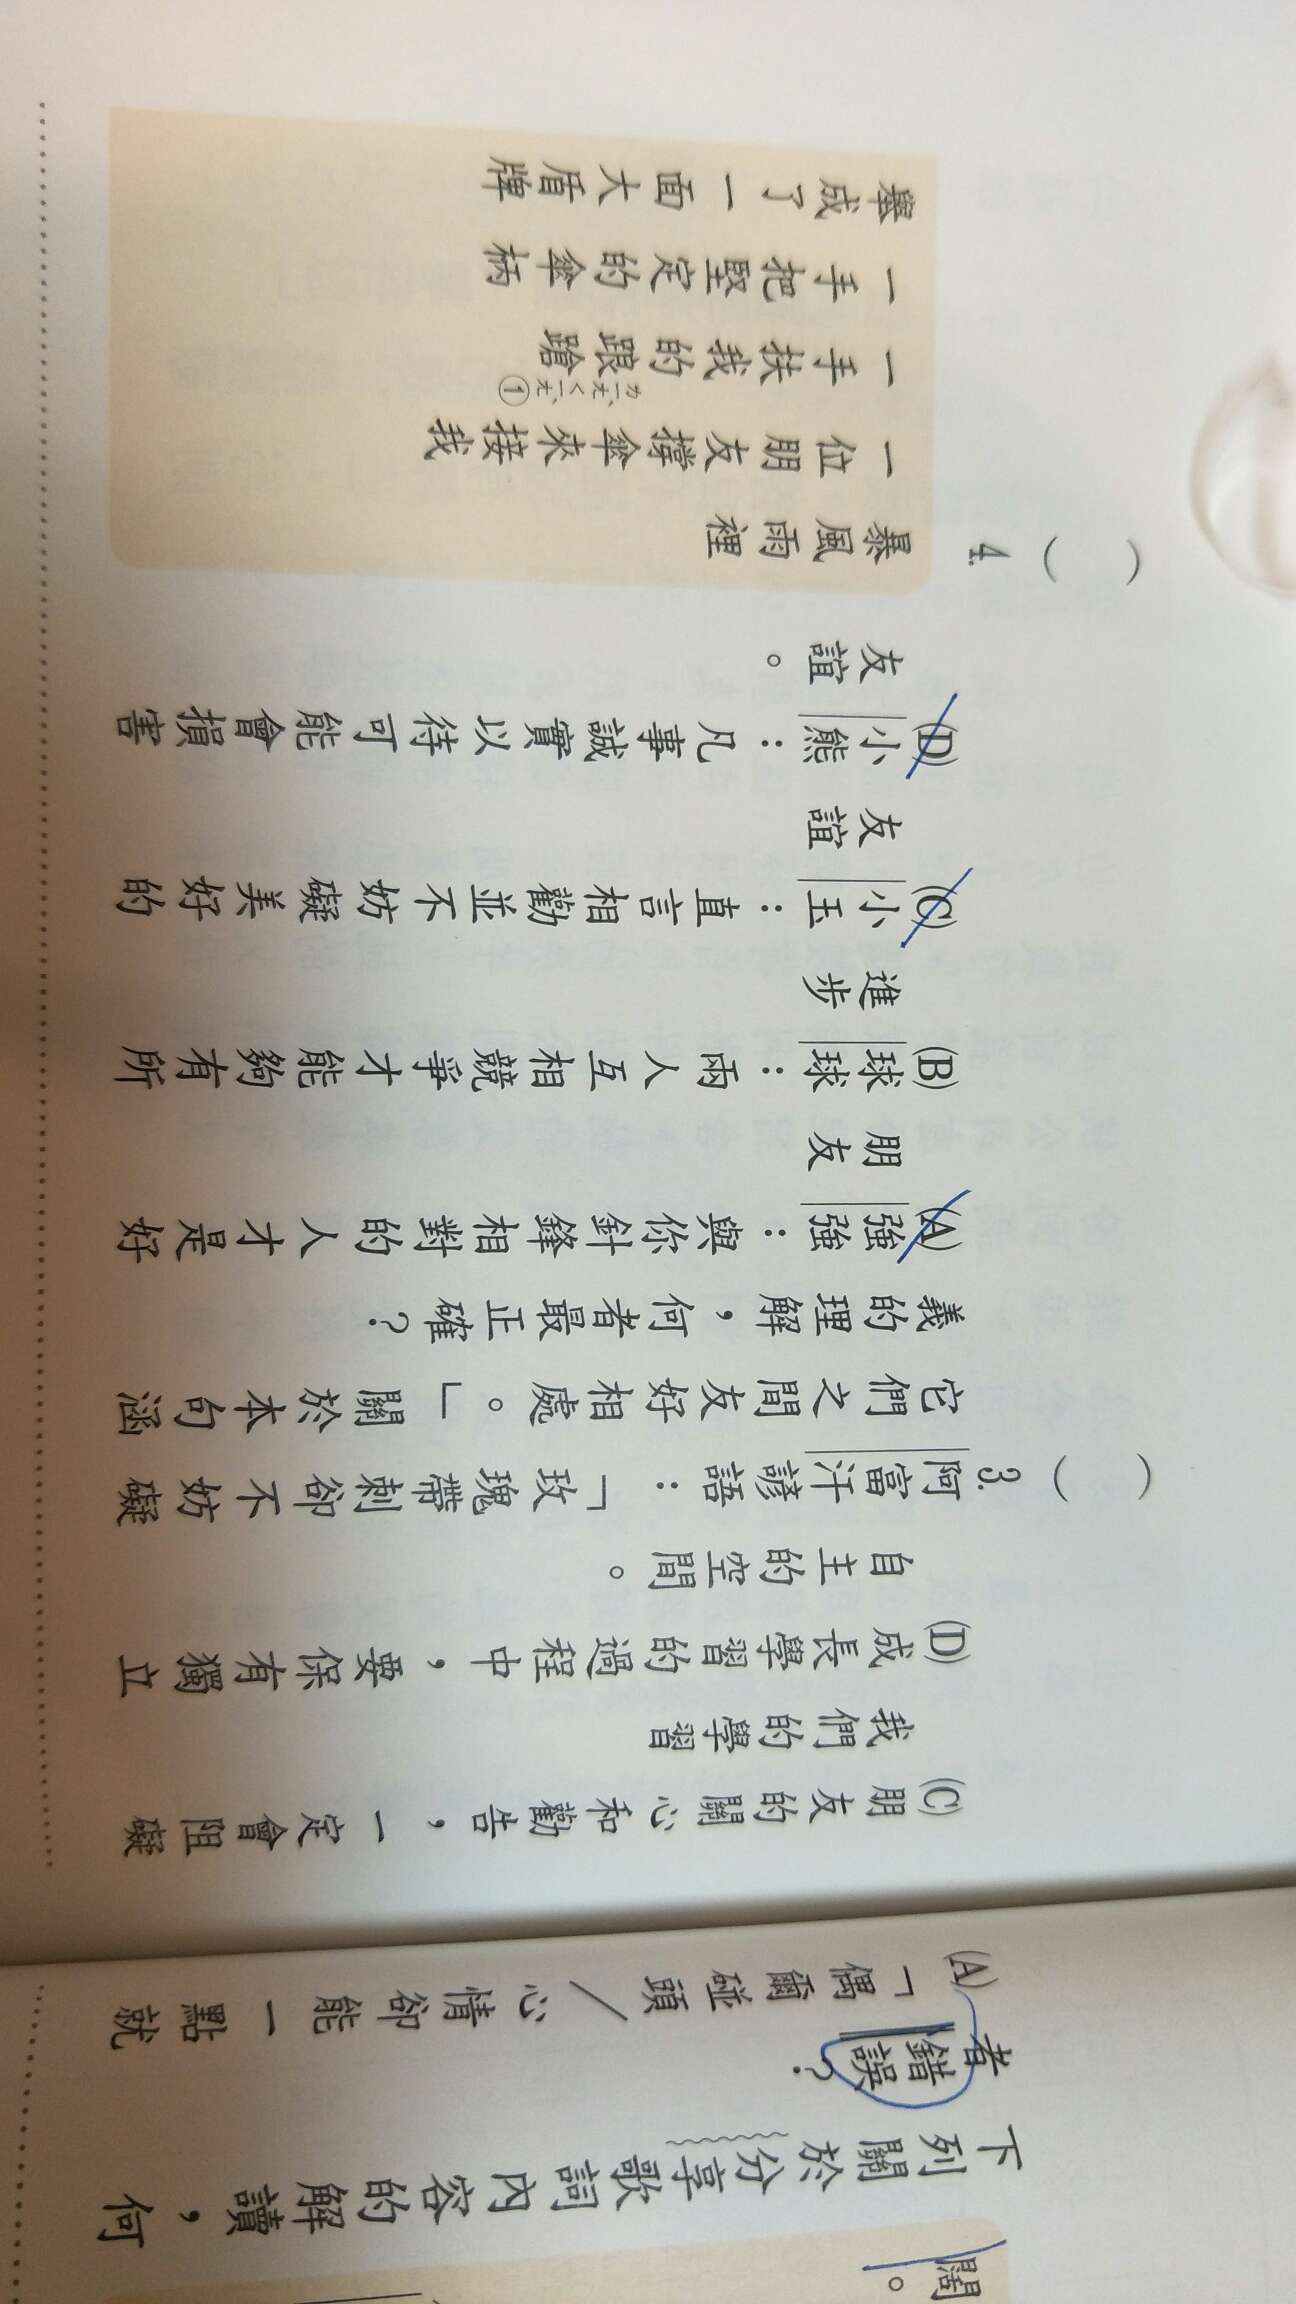 闊。
下列關於分享歌詞內容的解讀，何
者錯誤？
(A)「偶爾碰頭／心情卻能一點就
(C)朋友的關心和勸告，一定會阻礙
我們的學習
(D)成長學習的過程中，要保有獨立
自主的空間。
（　）3.阿富汗諺語：「玫瑰帶刺卻不妨礙
它們之間友好相處。」關於本句涵
義的理解，何者最正確？
(A)強強：與你針鋒相對的人才是好
朋友
(B)球球：兩人互相競爭才能夠有所
進步
(C)小玉：直言相勸並不妨礙美好的
友誼
(D)小熊：凡事誠實以待可能會損害
友誼。
（　）4.
暴風雨裡
一位朋友撐傘來接我
一手扶我的踉蹌①
ㄌㄧㄤˋㄑㄧㄤˋ
一手把堅定的傘柄
舉成了一面大盾牌